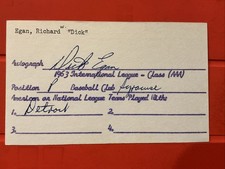 Egan, Richard W. "Dick"
Autograph Dick Egan
1963 International League - Class (AAA)
Position P Baseball Club Syracuse
American or National League Teams Played With:
1. Detroit 2.
3. 4.